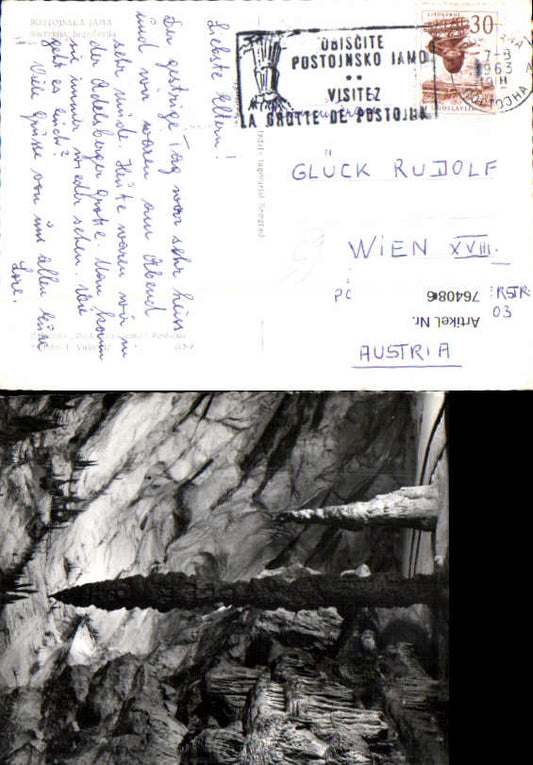 POSTOJNSKA JAMA
Slovenija, Jugoslavija
Liebste Eltern!
Der gestrige Tag war sehr heiss
und wir waren am Abend
sehr müde. Heute waren wir in
der Adelsberger Grotte. Man kann
sie immer wieder sehen. Wie
geht es euch?
Viele Grüsse von uns allen
Lore.
OBIŠČITE
POSTOJNSKO JAMO
VISITEZ
LA GROTTE DE POSTOJNA
30
JUGOSLAVIJA
7-8
1963
POSTOJNA
GLÜCK RUDOLF
WIEN XVIII.
AUSTRIA
Artikel Nr.
764086